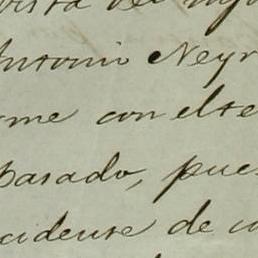 vista del
Antonio Neyr
me con el te
pasado, pues
cidense de co